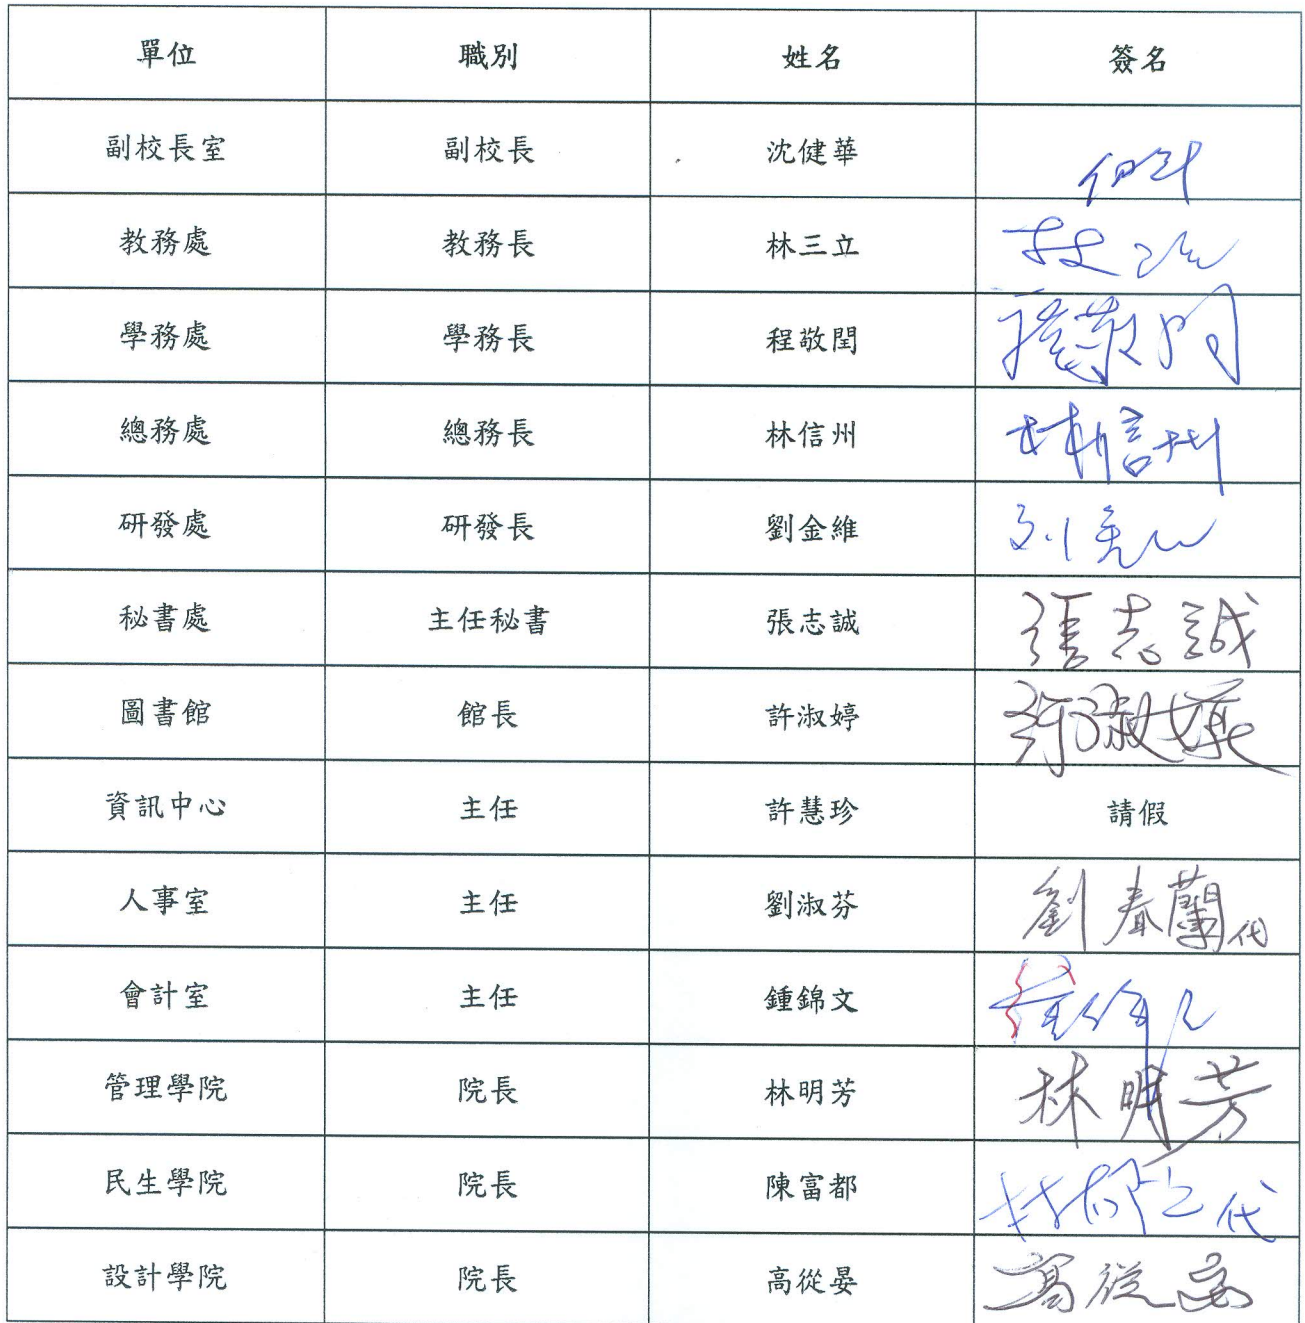 單位 職別 姓名 簽名
副校長室 副校長 沈健華
教務處 教務長 林三立
學務處 學務長 程敬閏 程敬閏
總務處 總務長 林信州 林信州
研發處 研發長 劉金維
秘書處 主任秘書 張志誠 張志誠
圖書館 館長 許淑婷 許淑婷
資訊中心 主任 許慧珍 請假
人事室 主任 劉淑芬 劉春蘭代
會計室 主任 鍾錦文
管理學院 院長 林明芳 林明芳
民生學院 院長 陳富都 代
設計學院 院長 高從晏 高從晏